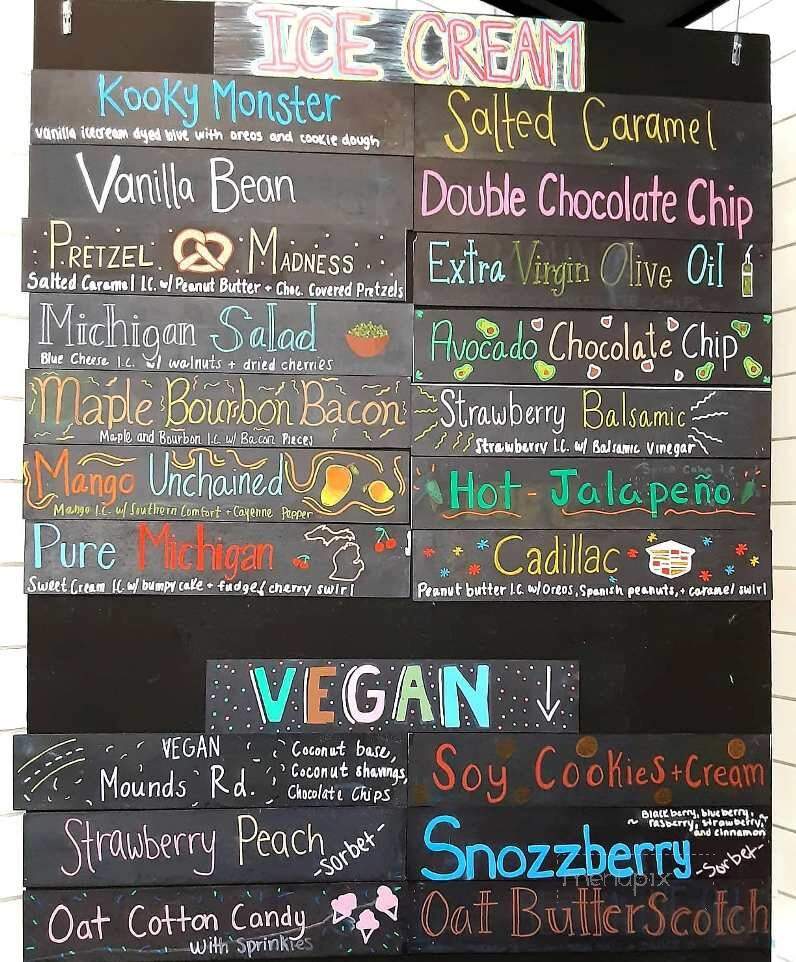 ICE CREAM
Kooky Monster
vanilla icecream dyed blue with oreos and cookie dough
Vanilla Bean
PRETZEL MADNESS
Salted Caramel I.C. w/ Peanut Butter + Choc. Covered Pretzels
Michigan Salad
Blue Cheese I.C. w/ walnuts + dried cherries
Maple Bourbon Bacon
Maple and Bourbon I.C. w/ Bacon Pieces
Mango Unchained
Mango I.C. w/ Southern Comfort + Cayenne Pepper
Pure Michigan
Sweet Cream I.C. w/ bumpy cake + fudge/cherry swirl
Salted Caramel
Double Chocolate Chip
Extra Virgin Olive Oil
Avocado Chocolate Chip
Strawberry Balsamic
Strawberry I.C. w/ Balsamic Vinegar
Hot-Jalapeño
Cadillac
Peanut butter I.C. w/ Oreos, Spanish peanuts, + caramel swirl
VEGAN
VEGAN
Mounds Rd.
Coconut base,
Coconut shavings,
Chocolate Chips
Strawberry Peach
-sorbet-
Oat Cotton Candy
with Sprinkles
Soy Cookies+Cream
~ Blackberry, blueberry, ~
rasberry, strawberry,
and cinnamon
Snozzberry
-Sorbet-
menupix
Oat ButterScotch